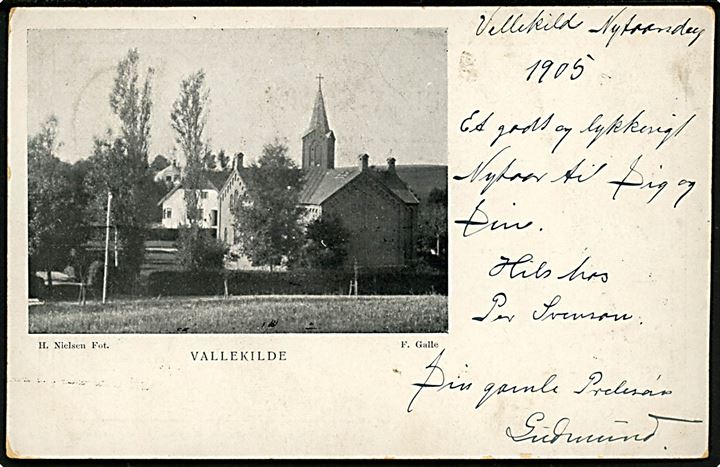 Vellekild Nytaarsdag
1905
Et godt og lykkeligt
Nytaar til Dig og
Dine.
Hils hos
Per Svenson.
Din gamle
Gudmund.
H. Nielsen Fot.
F. Galle
VALLEKILDE